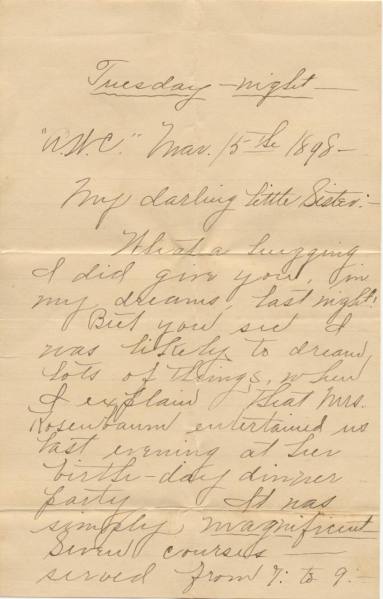 Tuesday - night -
"A.W.C." Mar. 15th 1898 -
My darling little Sister:-
What a hugging
I did give you, in
my dreams, last night!
But you see I
was likely to dream
lots of things, when
I explain that Mrs.
Rosenbaum entertained us
last evening at her
birth-day dinner
party It was
simply magnificent
Seven courses -
served from 7: to 9:-